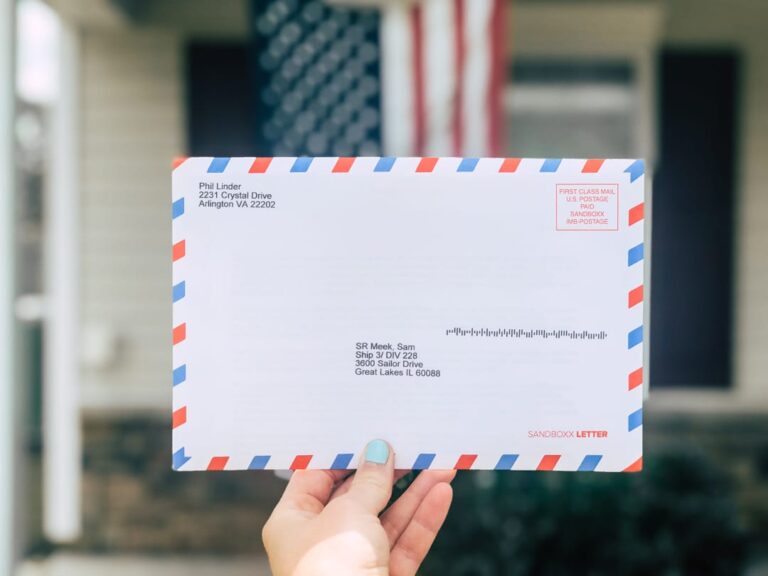 Phil Linder
2231 Crystal Drive
Arlington VA 22202
FIRST CLASS MAIL
U.S. POSTAGE
PAID
SANDBOXX
IMB-POSTAGE
SR Meek, Sam
Ship 3/ DIV 228
3600 Sailor Drive
Great Lakes IL 60088
SANDBOXX LETTER